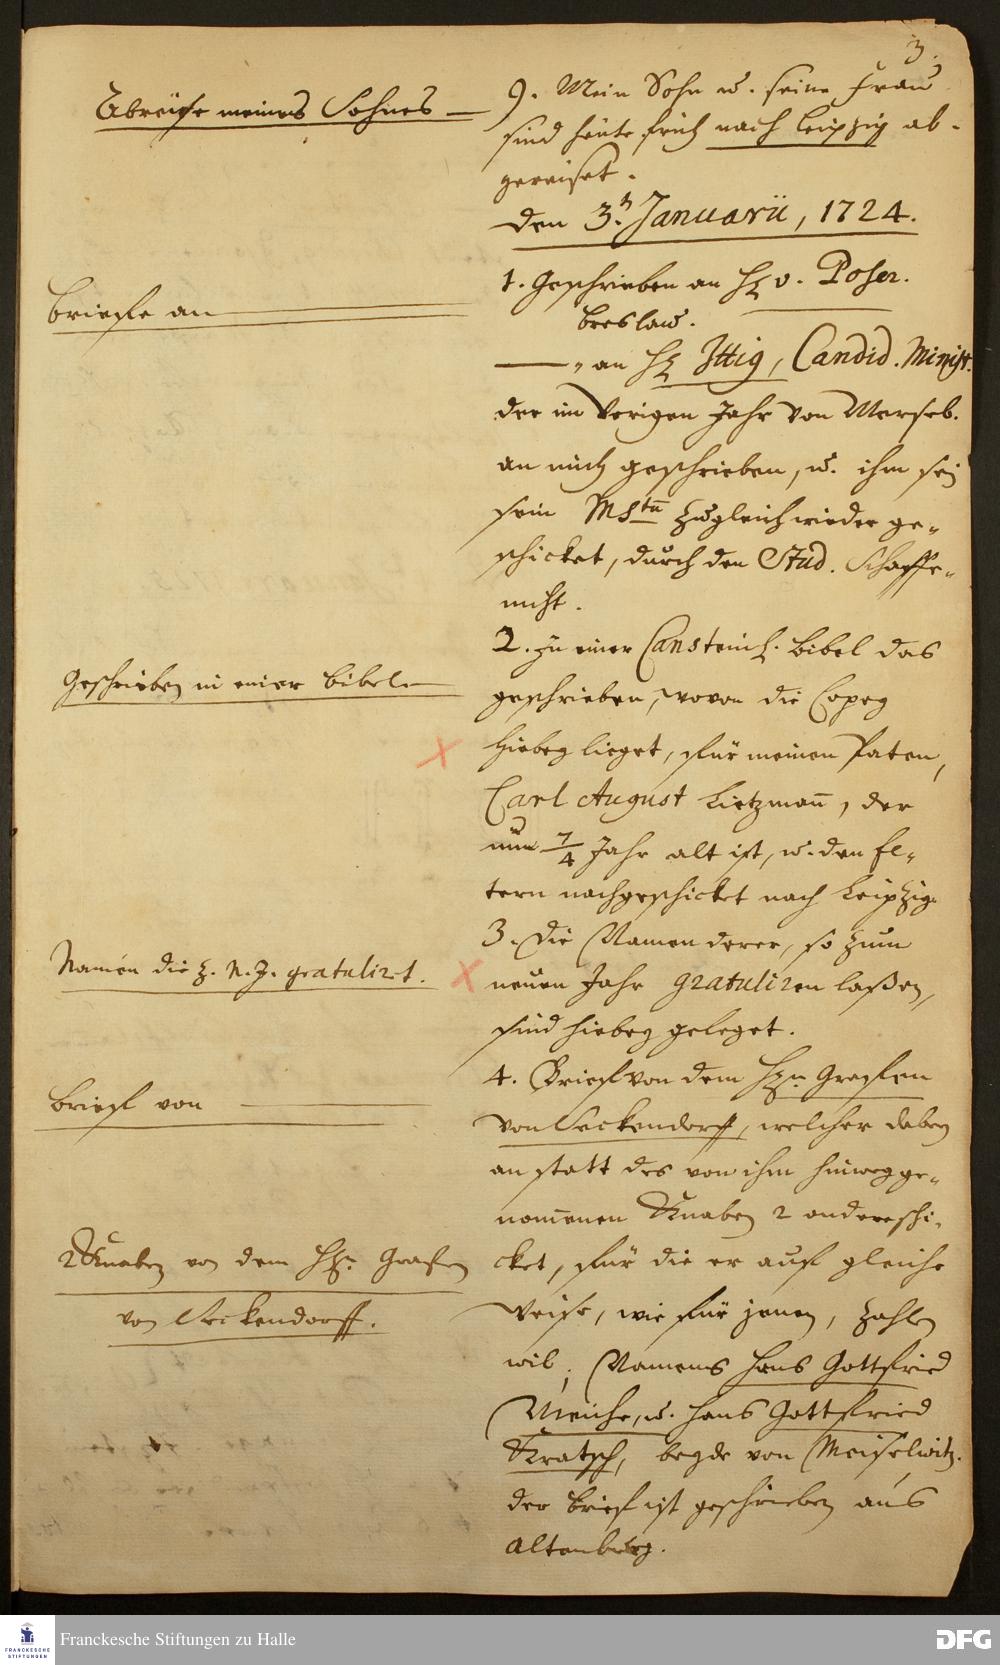 3.
Abreise meines Sohnes
9. Mein Sohn u. seine Frau
sind heute früh nach Leipzig ab-
gereiset.
den 3.t Januarii, 1724.
Briefe an
1. Geschrieben an H. v. Poser.
Breslau.
" an H. Ittig, Candid. Minist.
der im Vorigen Jahr von Merseb.
an mich geschrieben, u. ihm
sein Msten zugleich wieder ge-
schicket, durch den Stud. Schaffe-
nicht.
Geschrieben in einer Bibel
2. Zu einer Cansteinsch. Bibel das
geschrieben, wovon die Copey
hiebey lieget, für meinen Paten,
Carl August Lietzmann, der
nun 7/4 Jahr alt ist, u. den El-
tern nachgeschicket nach Leipzig.
Namen die z. N. J. gratulirt.
3. Die Namen derer, so zum
neuen Jahr gratuliren laßen,
sind hiebey geleget.
Brief von
4. Brief von dem Hrn. Grafen
von Seckendorff, welcher dabey
an statt des von ihm hinweg ge-
nommenen Knaben 2 andere schi-
2 Knaben von dem Hrn. Grafen
von Seckendorff.
cket, für die er auf gleiche
Weise, wie für jenen, zahlen
wil, Namens Hans Gottfried
Meiche, u. Hans Gottfried
Kratsch, beyde von Meiselwitz.
der Brief ist geschrieben aus
Altenburg.
FRANCKESCHE
STIFTUNGEN
Franckesche Stiftungen zu Halle
DFG